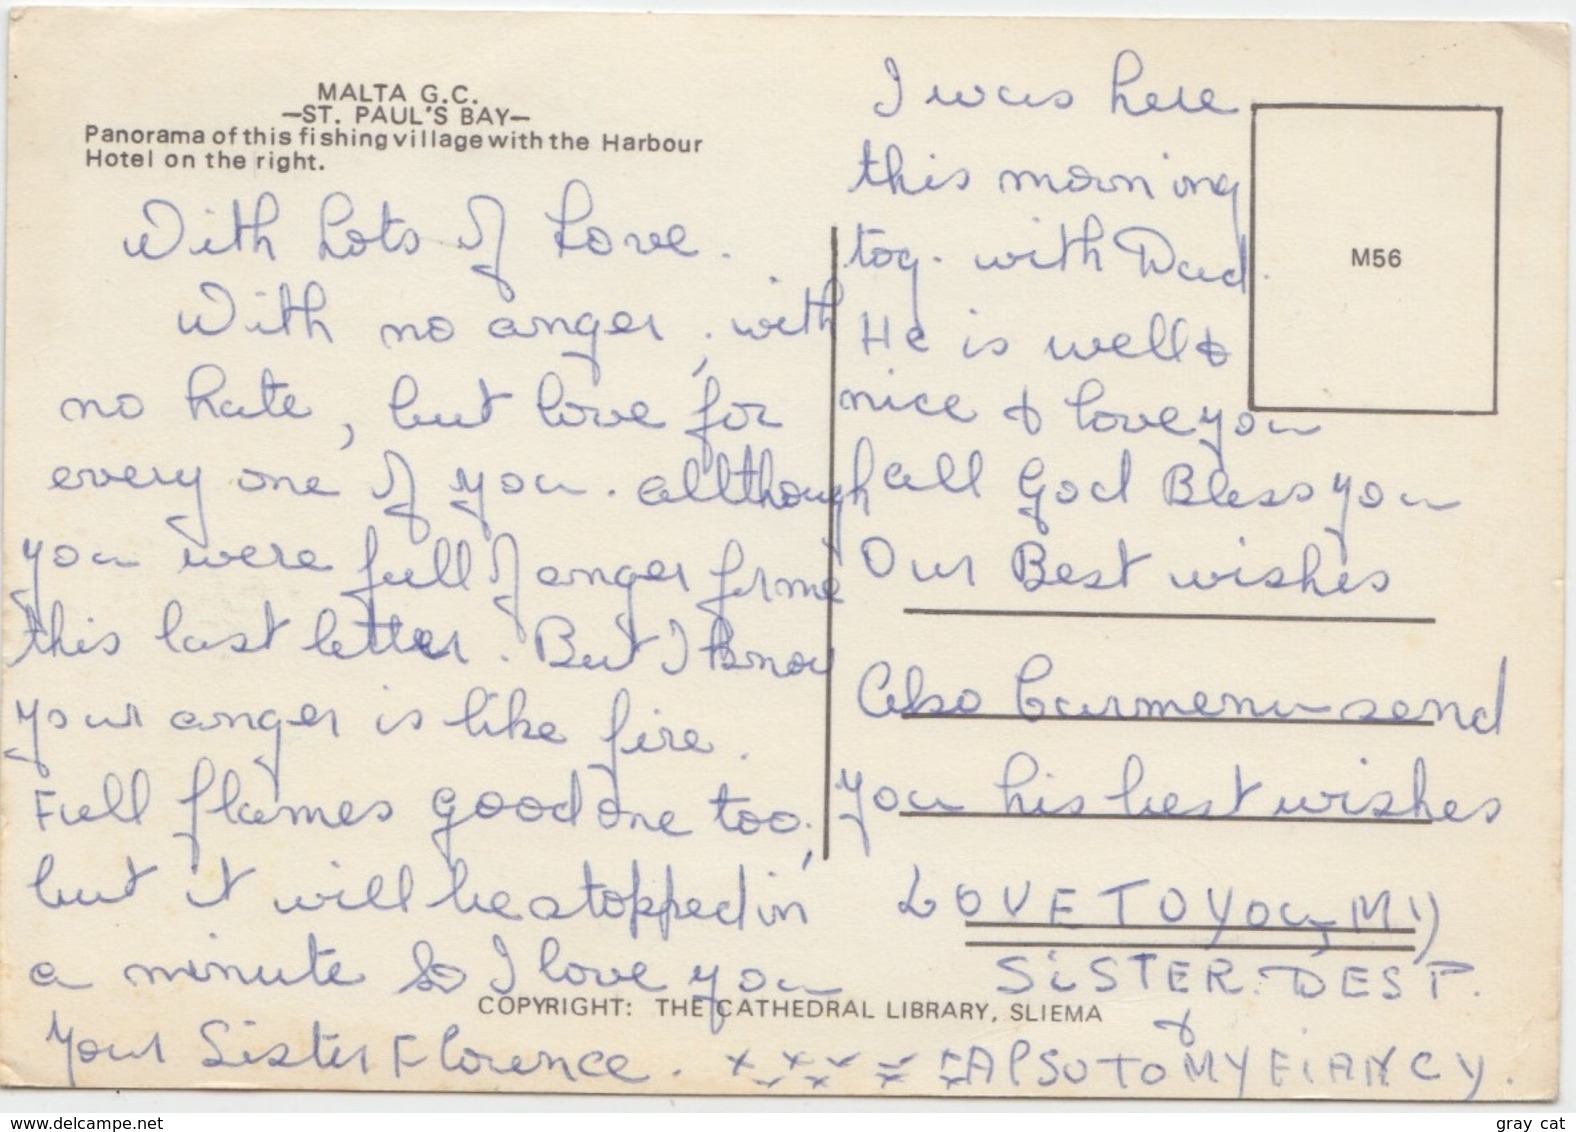 MALTA G.C.
—ST. PAUL'S BAY—
Panorama of this fishing village with the Harbour
Hotel on the right.
With Lots of Love.
With no anger, with
no hate, but love for
every one of you. allthough
you were full of anger for me
this last letter. But I know
your anger is like fire.
Full flames good one too,
but it will be stopped in
a minute so I love you
Your Sister Florence. x x x x x
I was here
this morning
tog. with Dad.
He is well &
nice & love you
all God Bless you
Our Best wishes
Also Carmenu send
you his best wishes
LOVE TO YOU, MY
SISTER. DESP.
&
ALSO TO MY FIANCY.
M56
COPYRIGHT: THE CATHEDRAL LIBRARY, SLIEMA
www.delcampe.net
gray_cat